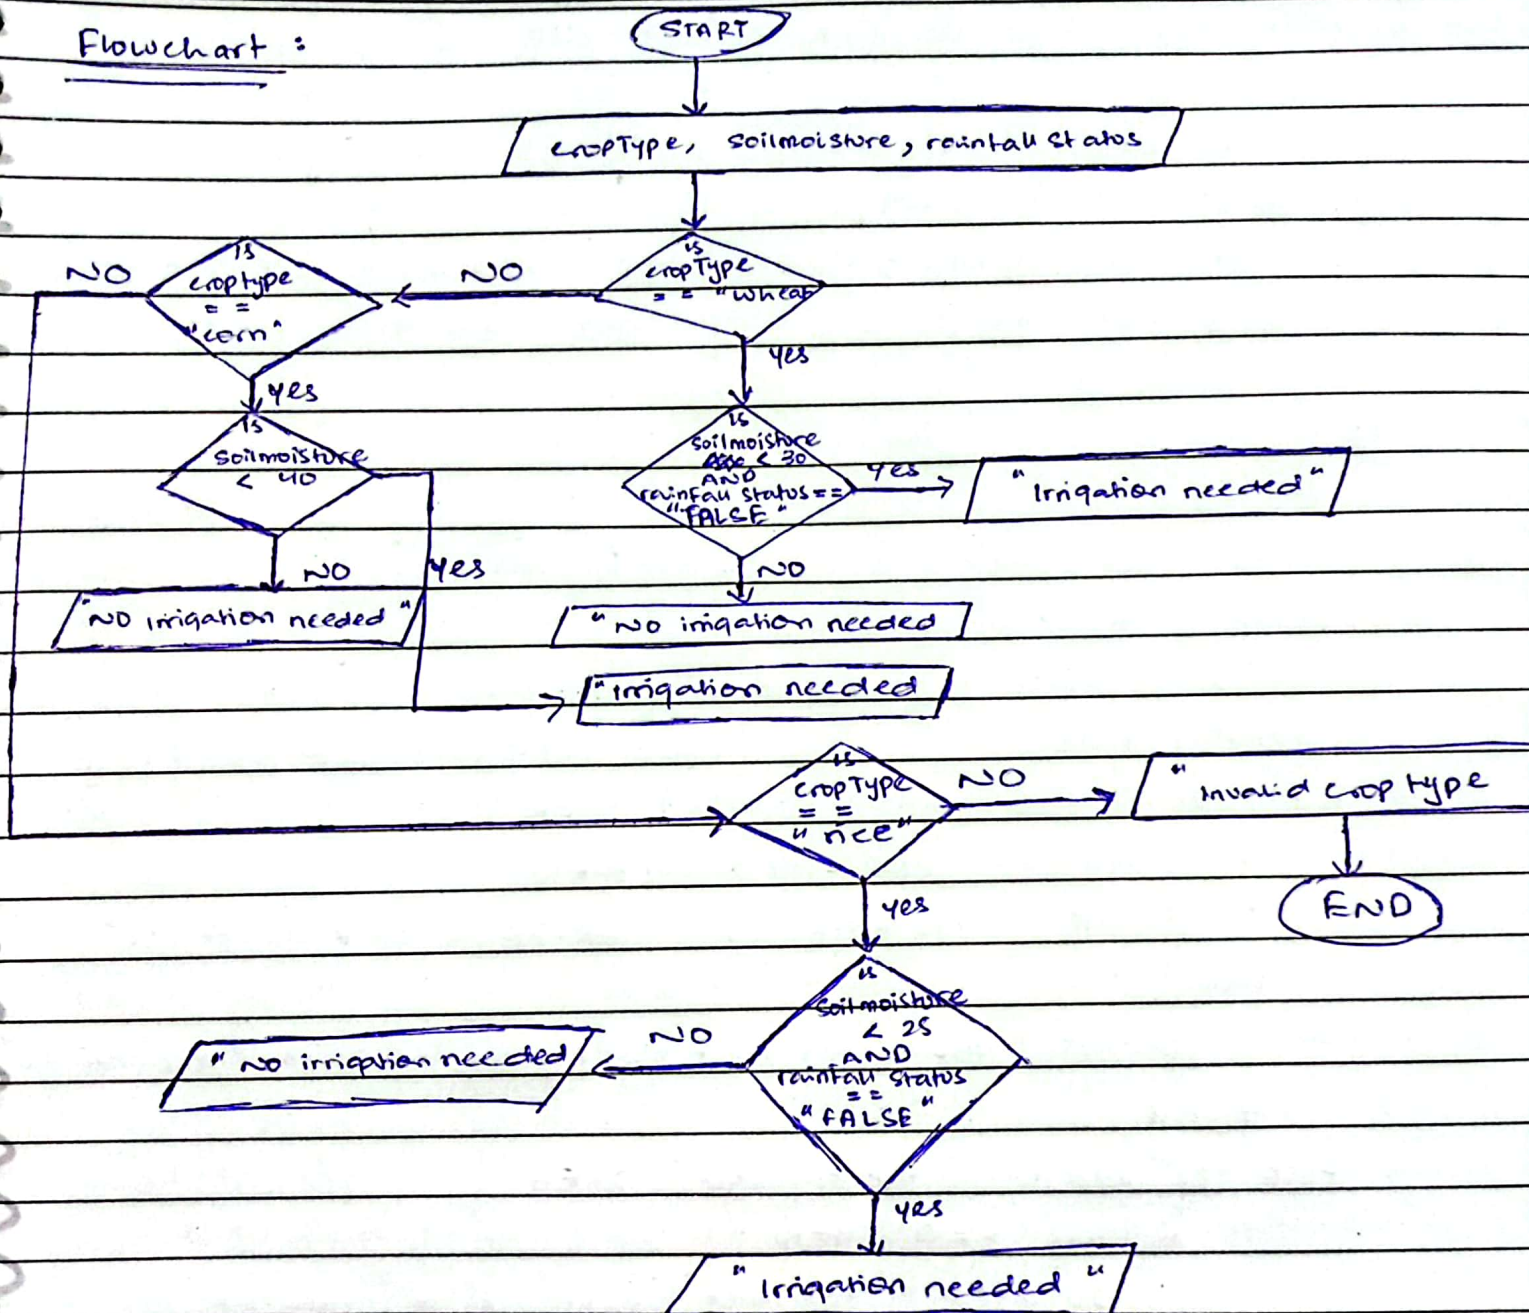 Flowchart :
START
cropType, soilmoisture, rainfall status
is
cropType
= = "wheat
NO
Is
croptype
= =
"corn"
NO
yes
yes
Is
soilmoisture
< 40
is
soilmoisture
< 30
AND
rainfall status ==
"FALSE"
yes
"Irrigation needed"
NO
yes
NO
"NO irrigation needed"
"No irrigation needed
"irrigation needed
is
cropType
= =
"rice"
NO
" Invalid crop type
END
yes
is
soilmoisture
< 25
AND
rainfall status
==
"FALSE"
NO
" No irrigation needed
yes
" Irrigation needed "